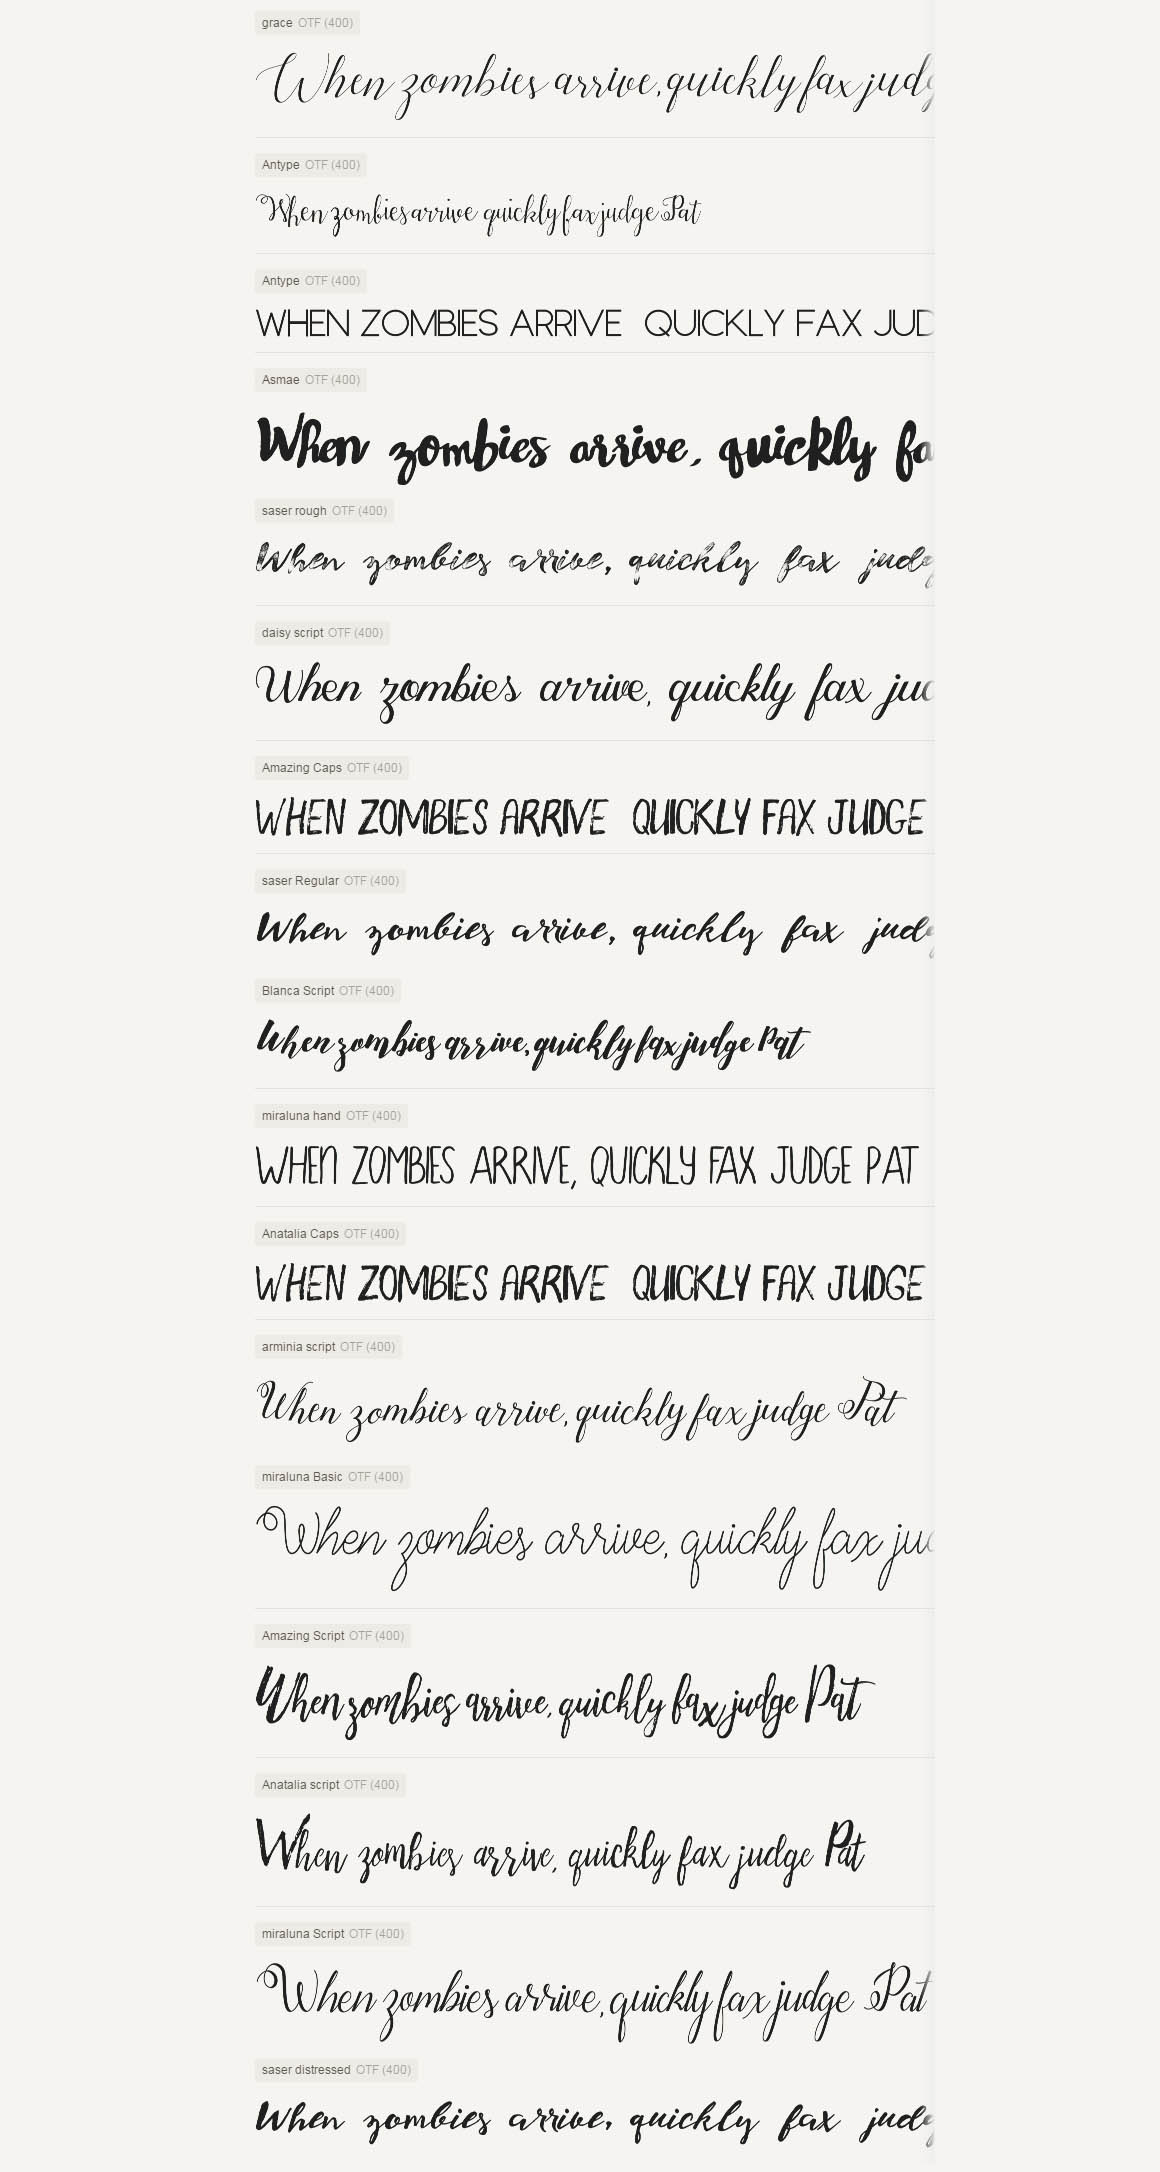 grace OTF (400)
When zombies arrive, quickly fax judg
Antype OTF (400)
When zombies arrive quickly fax judge Pat
Antype OTF (400)
WHEN ZOMBIES ARRIVE QUICKLY FAX JUD
Asmae OTF (400)
When zombies arrive, quickly fa
saser rough OTF (400)
When zombies arrive, quickly fax judg
daisy script OTF (400)
When zombies arrive, quickly fax jud
Amazing Caps OTF (400)
WHEN ZOMBIES ARRIVE QUICKLY FAX JUDGE
saser Regular OTF (400)
When zombies arrive, quickly fax judg
Blanca Script OTF (400)
When zombies arrive, quickly fax judge Pat
miraluna hand OTF (400)
WHEN ZOMBIES ARRIVE, QUICKLY FAX JUDGE PAT
Anatalia Caps OTF (400)
WHEN ZOMBIES ARRIVE QUICKLY FAX JUDGE
arminia script OTF (400)
When zombies arrive, quickly fax judge Pat
miraluna Basic OTF (400)
When zombies arrive, quickly fax jud
Amazing Script OTF (400)
When zombies arrive, quickly fax judge Pat
Anatalia script OTF (400)
When zombies arrive, quickly fax judge Pat
miraluna Script OTF (400)
When zombies arrive, quickly fax judge Pat
saser distressed OTF (400)
When zombies arrive, quickly fax judg